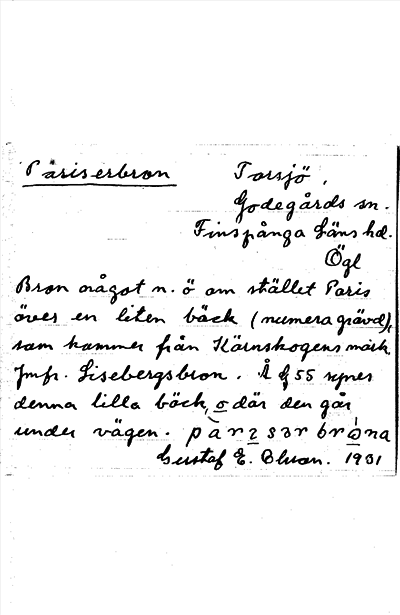 Pariserbron Torsjö,
Godegårds sn.
Finspånga Läns hd.
Ögl
Bron något n. ö om stället Paris
över en liten bäck (numera grävd),
som kommer från Kärnskogens mark.
Jmfr. Lisebergsbron. Å 55 syner
denna lilla bäck, o där den går
under vägen.
Gustaf E. Olsson. 1931